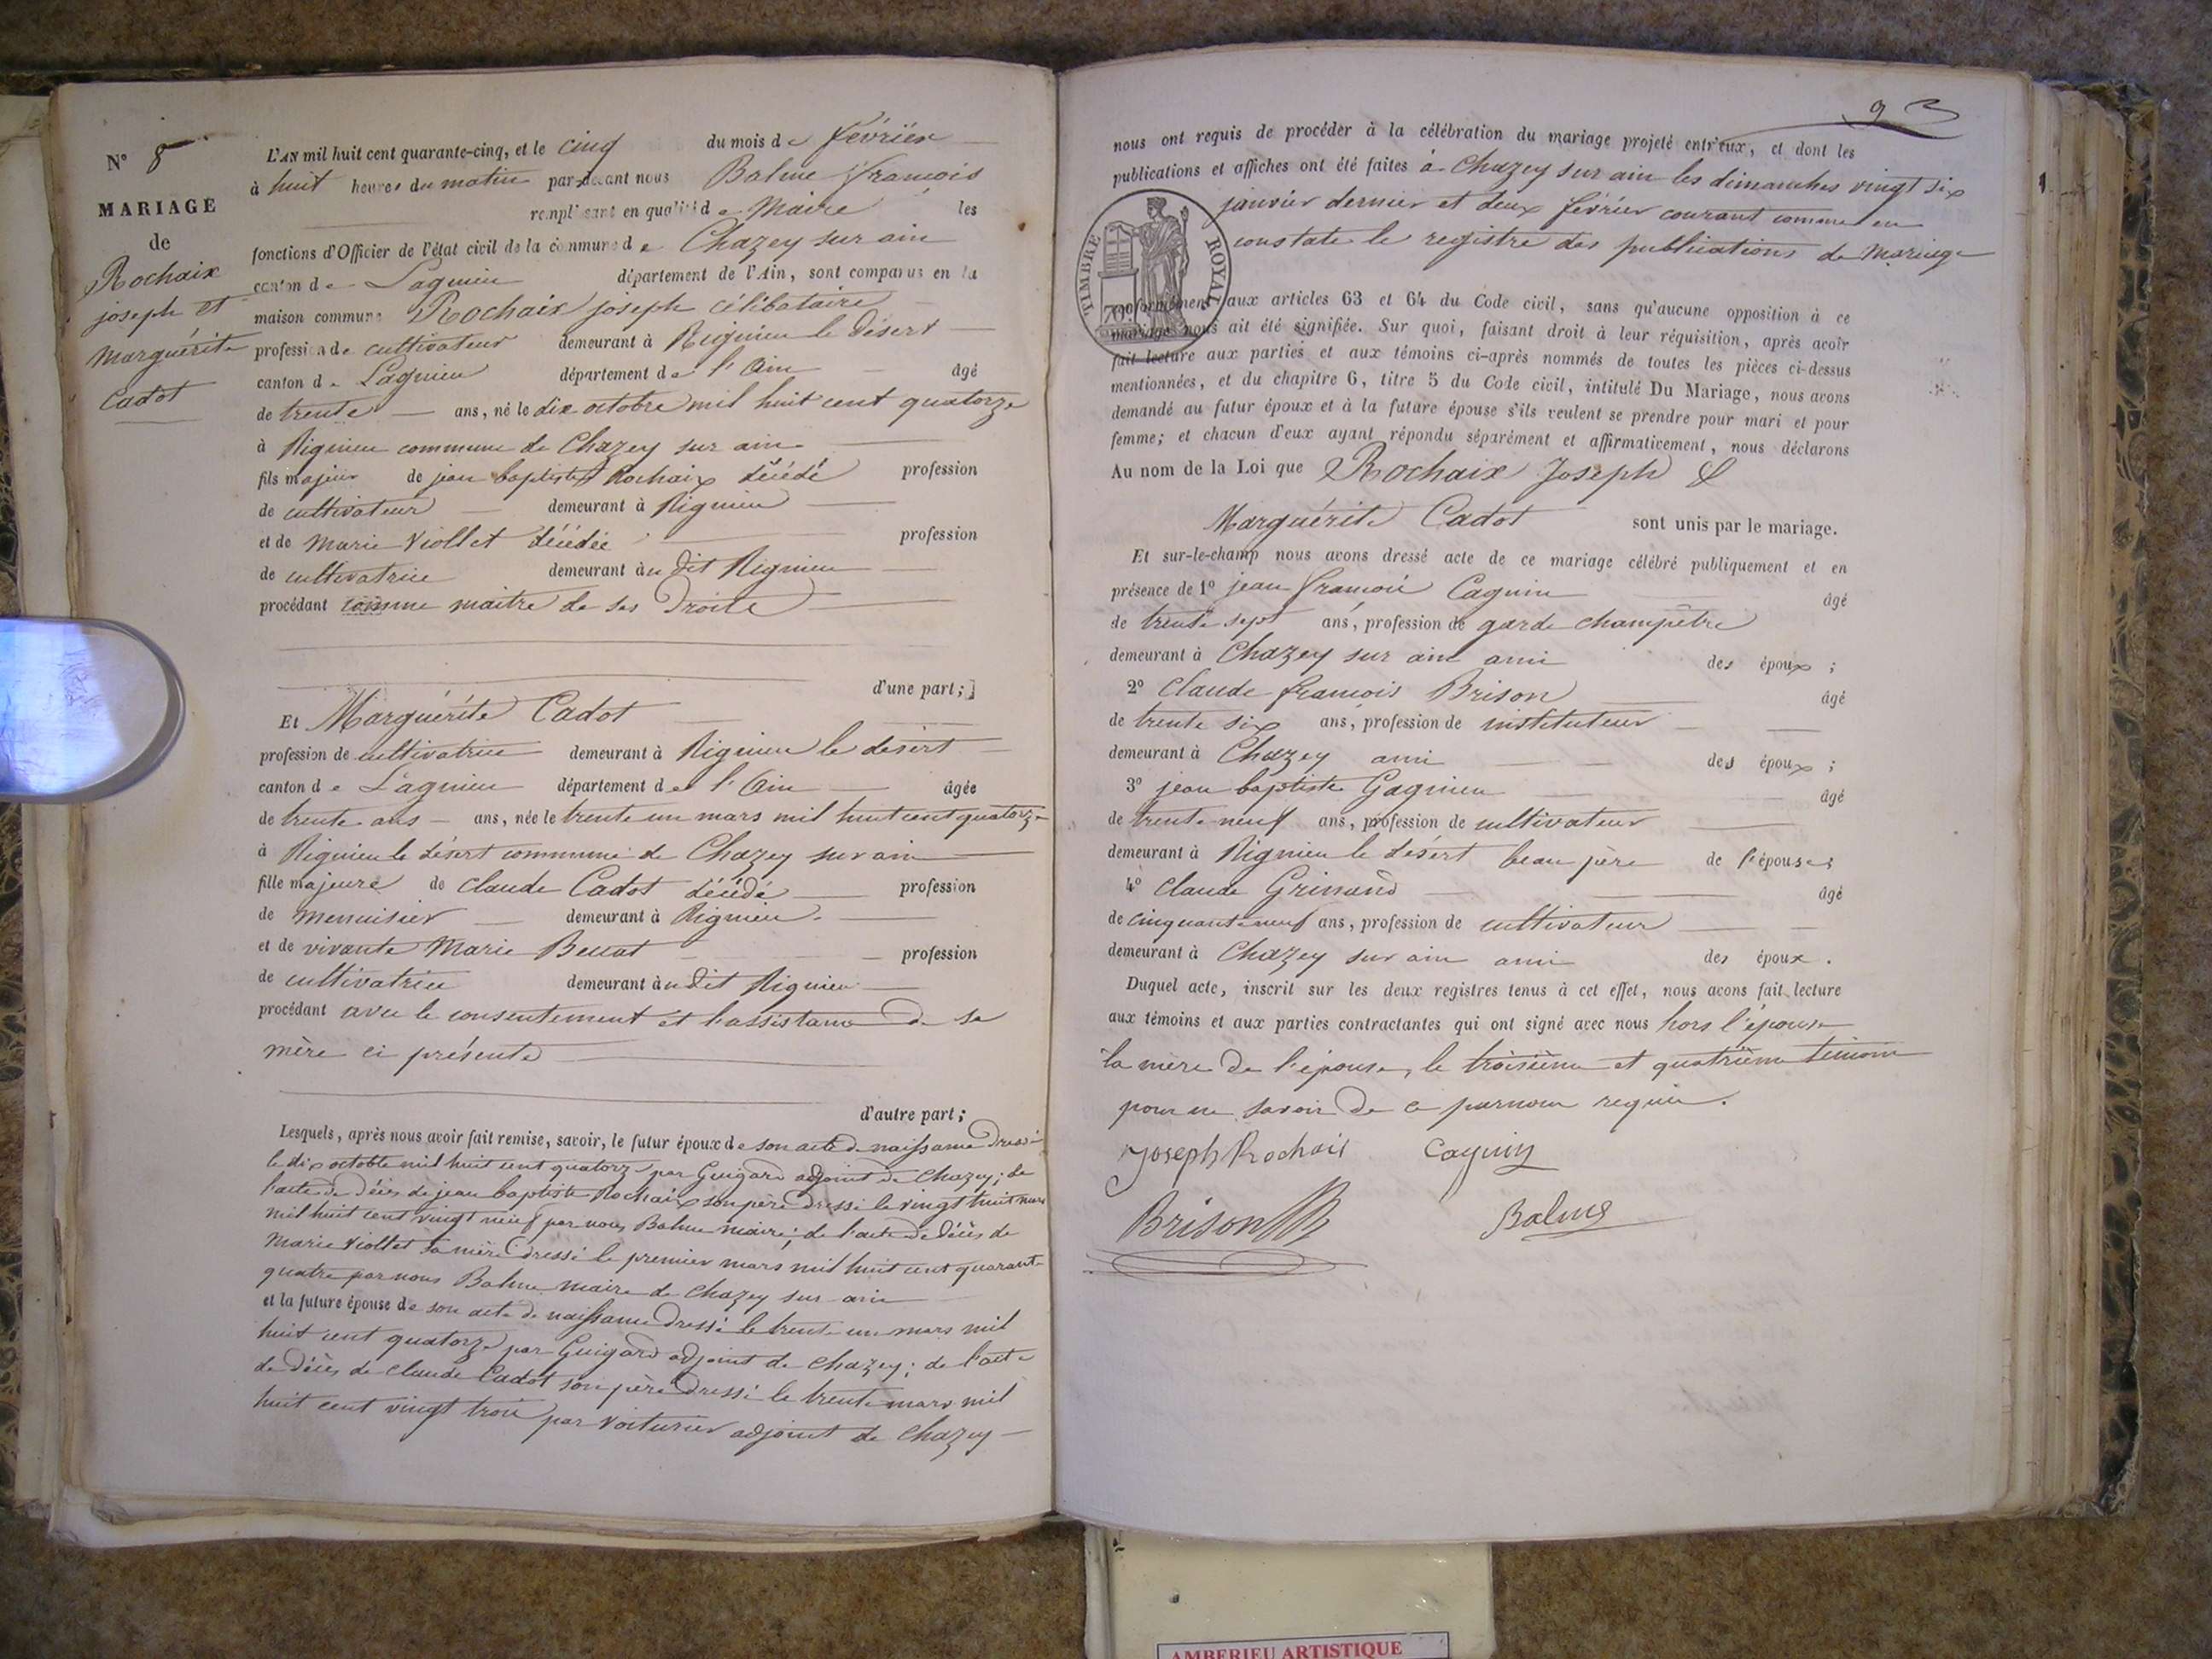 N° 8
MARIAGE
de
Rochaix
joseph et
Marguérite
Cadot
L'AN mil huit cent quarante-cinq, et le cinq du mois de février
à huit heures du matin par-devant nous Balme françois
remplissant en qualité de Maire les
fonctions d'Officier de l'état civil de la commune de Chazey sur ain
canton de Lagnieu département de l'Ain, sont comparus en la
maison commune Rochaix joseph célibataire
profession de cultivateur demeurant à Rignieu le Désert
canton de Lagnieu département de l'Ain âgé
de trente ans, né le dix octobre mil huit cent quatorze
à Rignieu commune de Chazey sur ain
fils majeur de jean baptiste Rochaix décédé profession
de cultivateur demeurant à Rignieu
et de Marie Viollet décédée profession
de cultivatrice demeurant àu dit Rignieu
procédant comme maitre de ses Droits
d'une part;
Et Marguérite Cadot
profession de cultivatrice demeurant à Rignieu le désert
canton de Lagnieu département de l'Ain âgée
de trente ans ans, née le trente un mars mil huit cent quatorze
à Rignieu le désert commune de Chazey sur ain
fille majeure de Claude Cadot décédé profession
de Menuisier demeurant à Rignieu
et de vivante Marie profession
de cultivatrice demeurant àu dit Rignieu
procédant avec le consentement et l'assistance de sa
mère ci présente
d'autre part;
Lesquels, après nous avoir fait remise, savoir, le futur époux de son acte de naissance dressé
le dix octobre mil huit cent quatorze par Guigard adjoint de Chazey; de
l'acte de décès de jean baptiste Rochaix son père dressé le vingt huit mars
mil huit cent vingt neuf par nous Balme maire; de l'acte de décès de
Marie Viollet sa mère dressé le premier mars mil huit cent quarante
quatre par nous Balme maire de Chazey sur ain
et la future épouse de son acte de naissance dressé le trente un mars mil
huit cent quatorze par Guigard adjoint de Chazey; de l'acte
de décès de Claude Cadot son père dressé le trente mars mil
huit cent vingt trois par Voiturier adjoint de Chazey
93
nous ont requis de procéder à la célébration du mariage projeté entr'eux, et dont les
publications et affiches ont été faites à Chazey sur ain les dimanches vingt six
janvier dernier et deux février courant comme en
constate le registre des publications de Mariage
TIMBRE ROYAL
conformément aux articles 63 et 64 du Code civil, sans qu'aucune opposition à ce
mariage nous ait été signifiée. Sur quoi, faisant droit à leur réquisition, après avoir
fait lecture aux parties et aux témoins ci-après nommés de toutes les pièces ci-dessus
mentionnées, et du chapitre 6, titre 5 du Code civil, intitulé Du Mariage, nous avons
demandé au futur époux et à la future épouse s'ils veulent se prendre pour mari et pour
femme; et chacun d'eux ayant répondu séparément et affirmativement, nous déclarons
Au nom de la Loi que Rochaix Joseph &
Marguérite Cadot sont unis par le mariage.
Et sur-le-champ nous avons dressé acte de ce mariage célébré publiquement et en
présence de 1° jean françois Cagnin âgé
de trente sept ans, profession de garde champêtre
demeurant à Chazey sur ain ami des époux;
2° Claude françois Brison âgé
de trente six ans, profession de instituteur
demeurant à Chazey ami des époux;
3° jean baptiste Gagnieu âgé
de trente neuf ans, profession de cultivateur
demeurant à Rignieu le désert beau père de l'épouse;
4° Claude Grinand âgé
de cinquante neuf ans, profession de cultivateur
demeurant à Chazey sur ain ami des époux.
Duquel acte, inscrit sur les deux registres tenus à cet effet, nous avons fait lecture
aux témoins et aux parties contractantes qui ont signé avec nous hors l'épouse
la mère de l'épouse, le troisième et quatrième témoin
pour ne savoir de ce par nous requis.
Joseph Rochaix Cagnin
Brison Balme
AMBERIEU ARTISTIQUE